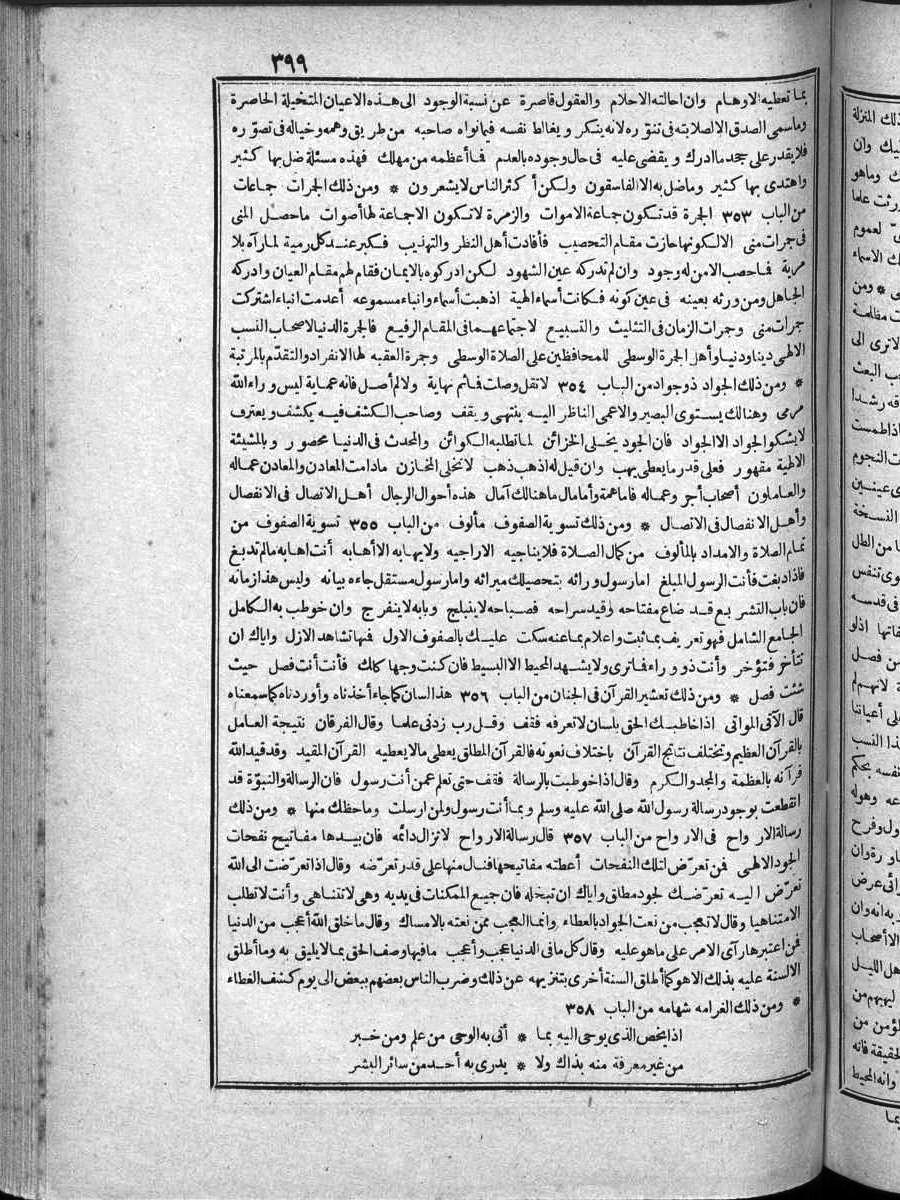 ٣٩٩
بما تعطيه الاوهام وان احالته الاحلام والعقول قاصرة عن نسبة الوجود الى هذه الاعيان المتخيلة الحاصرة
وما سمى الصدق الا لصلابته فى تنوّره لانه ينكر ويغالط نفسه فيما نواه صاحبه من طريق وهمه وخياله فى تصوّره
فلا يقدر على جحد ما ادرك ويقضى عليه فى حال وجوده بالعدم فما أعظمه من مهلك فهذه مسئلة ضل بها كثير
واهتدى بها كثير وما ضل به الا الفاسقون ولكن أكثر الناس لا يشعرون * ومن ذلك الجرات جماعات
من الباب ٣٥٣ الجرة قد تكون جماعة الاموات والزمرة لا تكون الا جماعة لها أصوات ما حصل المنى
فى جمرات منى الا لكونها حازت مقام التحصيب فأفادت أهل النظر والتهذيب فكبر عند كل رمية لما رآه بلا
مرية فما حصب الا من له وجود وان لم تدركه عين الشهود لكن ادركوه بالايمان فقام لهم مقام العيان وادركه
الجاهل ومن ورثه بعينه فى عين كونه فكانت أسماء الهية اذهبت أسماء وانباء مسموعه أعدمت انباء اشتركت
جرات منى وجمرات الزمان فى التثليث والتسبيع لاجتماعهما فى المقام الرفيع فالجرة الدنيا لاصحاب النسب
الالهى دينا ودنيا وأهل الجرة الوسطى للمحافظين على الصلاة الوسطى وجمرة العقبه لها الانفراد والتقدّم بالمرتبة
* ومن ذلك الجواد ذو جواد من الباب ٣٥٤ لا تقل وصلت فما ثم نهاية ولا لم أصل فانه عماية ليس وراء الله
مرمى وهنالك يستوى البصير والاعمى الناظر اليه ينتهى ويقف وصاحب الكشف فيه يكشف ويعترف
لا يشكو الجواد الا الجواد فان الجود يخلى الخزائن لما تطلبه الكوائن والمحدث فى الدنيا محصور وبالمشيئة
الالهية مقهور فعلى قدر ما يعطى يهب وان قيل له اذهب ذهب لا تخلى المخازن مادامت المعادن والمعادن عماله
والعاملون أصحاب أجر وعماله فما عمة وأما مال ما هنالك آمال هذه أحوال الرجال أهل الاتصال فى الانفصال
وأهل الانفصال فى الاتصال * ومن ذلك تسوية الصفوف مألوف من الباب ٣٥٥ تسوية الصفوف من
تمام الصلاة والامداد بالمألوف من كمال الصلاة فلا يناجيه الا راجيه ولا يهابه الا أهابه أنت اهابه ما لم تدبغ
فاذا دبغت فأنت الرسول المبلغ اما رسول وراثه بتحصيلك ميراثه واما رسول مستقل جاءه بيانه وليس هذا زمانه
فان باب التشريع قد ضاع مفتاحه وقيد سراحه فصباحه لا ينبلج وبابه لا ينفرج وان خوطب به الكامل
الجامع الشامل فهو تعريف بما ثبت واعلام بما عنه سكت عليك بالصفوف الاول فيها تشاهد الازل واياك ان
تتأخر فتؤخر وأنت ذو وراء فترى ولا يشهد المحيط الا البسيط فان كنت وجها كلك فأنت أنت فصل حيث
شئت فصل * ومن ذلك تعشير القرآن فى الجنان من الباب ٣٥٦ هذا لسان كما جاء أخذناه وأوردناه كما سمعناه
قال الآتى المواتى اذا خاطبك الحق بلسان لا تعرفه فقف وقل رب زدنى علما وقال الفرقان نتيجة العامل
بالقرآن العظيم وتختلف نتائج القرآن باختلاف نعوته فالقرآن المطلق يعطى ما لا يعطيه القرآن المقيد وقد قيد الله
قرآنه بالعظمة والمجد والكرم وقال اذا خوطبت بالرسالة فقف حتى تعلم عمن أنت رسول فان الرسالة والنبوّة قد
انقطعت بوجود رسالة رسول الله صلى الله عليه وسلم وبما أنت رسول ولمن ارسلت وما حظك منها * ومن ذلك
رسالة الارواح فى الارواح من الباب ٣٥٧ قال رسالة الارواح لا تزال دائمه فان بيدها مفاتيح نفحات
الجود الالهى فمن تعرّض لتلك النفحات أعطته مفاتيحها فنال منها على قدر تعرّضه وقال اذا تعرّضت الى الله
تعرّض اليه تعرّضك لجود مطلق واياك ان تبخله فان جميع الممكنات فى يديه وهى لا تتناهى وأنت لا تطلب
الا متناهيا وقال لا تعجب من نعت الجواد بالعطاء وانما العجب ممن نعته بالامساك وقال ما خلق الله أعجب من الدنيا
فمن اعتبرها رآى الامر على ما هو عليه وقال كل ما فى الدنيا عجب وأعجب ما فيها وصف الحق بما لا يليق به وما أطلق
الالسنة عليه بذلك الا هو كما أطلق السنة أخرى بتنزيهه عن ذلك وضرب الناس بعضهم ببعض الى يوم كشف الغطاء
* ومن ذلك الغرامه شهامه من الباب ٣٥٨
اذا يخص الذى يوحى اليه بما * أتى به الوحى من علم ومن خبر
من غير معرفة منه بذاك ولا * يدرى به أحد من سائر البشر